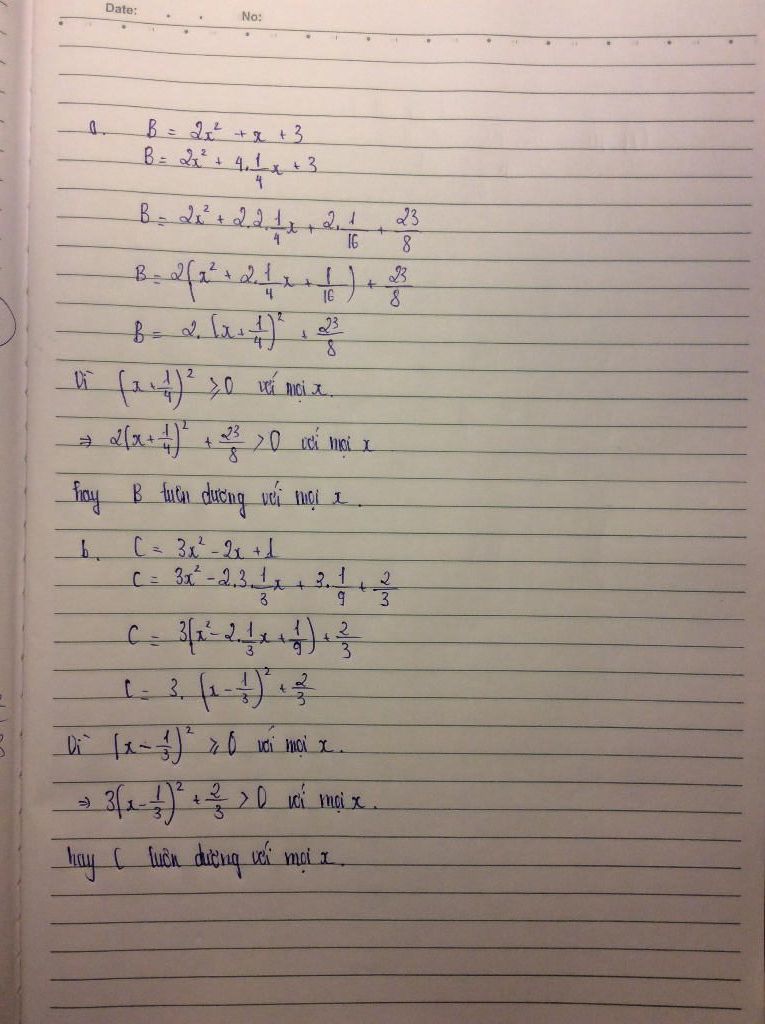 Date: No:
a. B = 2x² + x + 3
B = 2x² + 4.1/4x + 3
B = 2x² + 2.2.1/4x + 2.1/16 + 23/8
B = 2(x² + 2.1/4x + 1/16) + 23/8
B = 2.(x + 1/4)² + 23/8
Vì (x + 1/4)² ⩾ 0 với mọi x.
⇒ 2(x + 1/4)² + 23/8 > 0 với mọi x
hay B luôn dương với mọi x.
b. C = 3x² - 2x + 1
C = 3x² - 2.3.1/3x + 3.1/9 + 2/3
C = 3(x² - 2.1/3x + 1/9) + 2/3
C = 3. (x - 1/3)² + 2/3
Vì (x - 1/3)² ⩾ 0 với mọi x.
⇒ 3(x - 1/3)² + 2/3 > 0 với mọi x.
hay C luôn dương với mọi x.